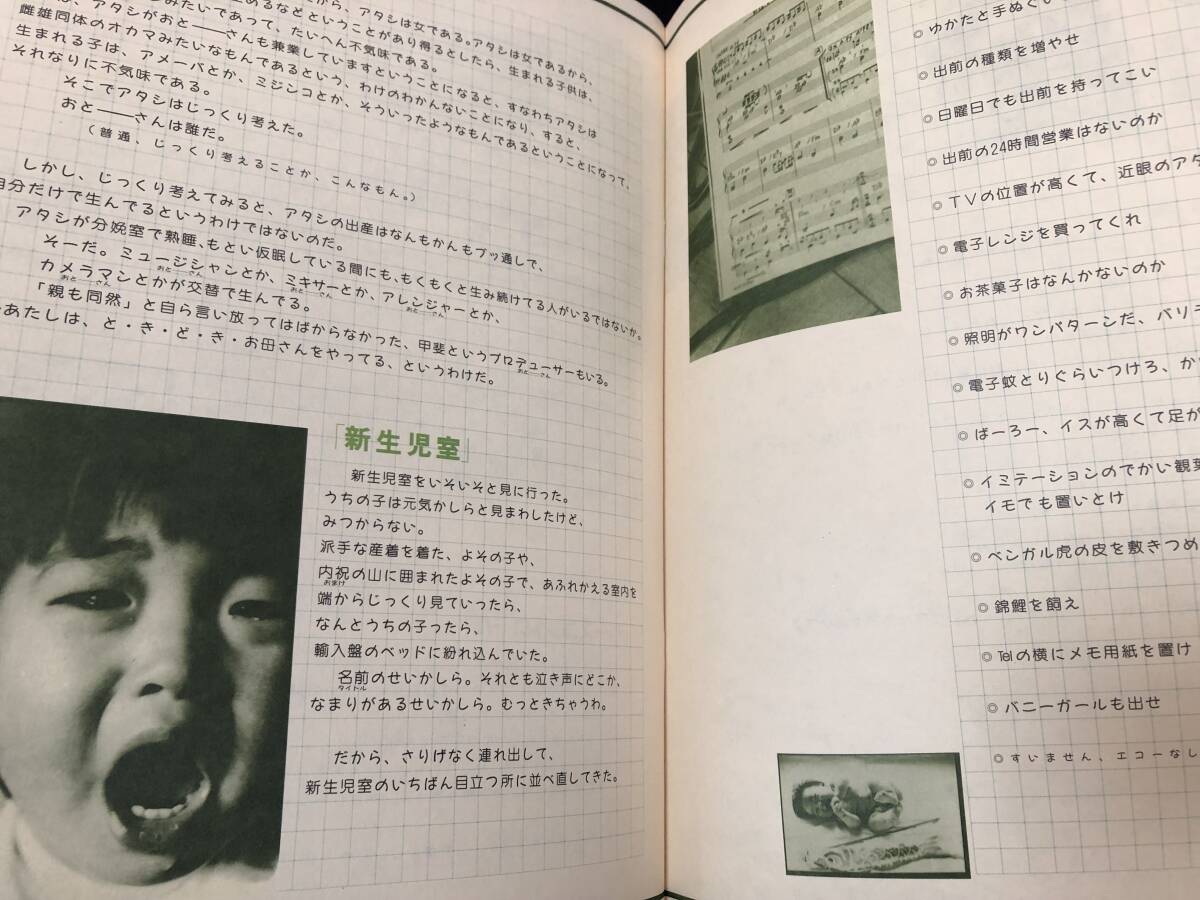 から、アタシは女である。アタシは女であるから、
めるなどということがあり得るとしたら、生まれる子供は、
みたいであって、たいへん不気味である。
は、アタシがおと――さんも兼業していますということになると、すなわちアタシは
雌雄同体のオカマみたいなもんであるという、わけのわかんないことになり、すると、
生まれる子は、アメーバとか、ミジンコとか、そういったようなもんであるということになって、
それなりに不気味である。
そこでアタシはじっくり考えた。
おと――さんは誰だ。
(普通、じっくり考えることか、こんなもん。)
しかし、じっくり考えてみると、アタシの出産はなんもかんもブッ通しで、
自分だけで生んでるというわけではないのだ。
アタシが分娩室で熟睡、もとい仮眠している間にも、もくもくと生み続けてる人がいるではないか。
そーだ。ミュージシャンとか、ミキサーとか、アレンジャーとか、
おと――さん おと――さん おと――さん
カメラマンとかが交替で生んでる。
おと――さん
「親も同然」と自ら言い放ってはばからなかった、甲斐というプロデューサーもいる。
おと――さん
あたしは、と・き・ど・き・お母さんをやってる、というわけだ。
「新生児室」
新生児室をいそいそと見に行った。
うちの子は元気かしらと見まわしたけど、
みつからない。
派手な産着を着た、よその子や、
内祝の山に囲まれたよその子で、あふれかえる室内を
おまけ
端からじっくり見ていったら、
なんとうちの子ったら、
輸入盤のベッドに紛れ込んでいた。
名前のせいかしら。それとも泣き声にどこか、
タイトル
なまりがあるせいかしら。むっときちゃうわ。
だから、さりげなく連れ出して、
新生児室のいちばん目立つ所に並べ直してきた。
◎ ゆかたと手ぬぐい
◎ 出前の種類を増やせ
◎ 日曜日でも出前を持ってこい
◎ 出前の24時間営業はないのか
◎ TVの位置が高くて、近眼のアタ
◎ 電子レンジを買ってくれ
◎ お茶菓子はなんかないのか
◎ 照明がワンパターンだ、バリ
◎ 電子蚊とりぐらいつけろ、か
◎ ばーろー、イスが高くて足が
◎ イミテーションのでかい観葉
イモでも置いとけ
◎ ベンガル虎の皮を敷きつめ
◎ 錦鯉を飼え
◎ Telの横にメモ用紙を置け
◎ バニーガールも出せ
◎ すいません、エコーなし